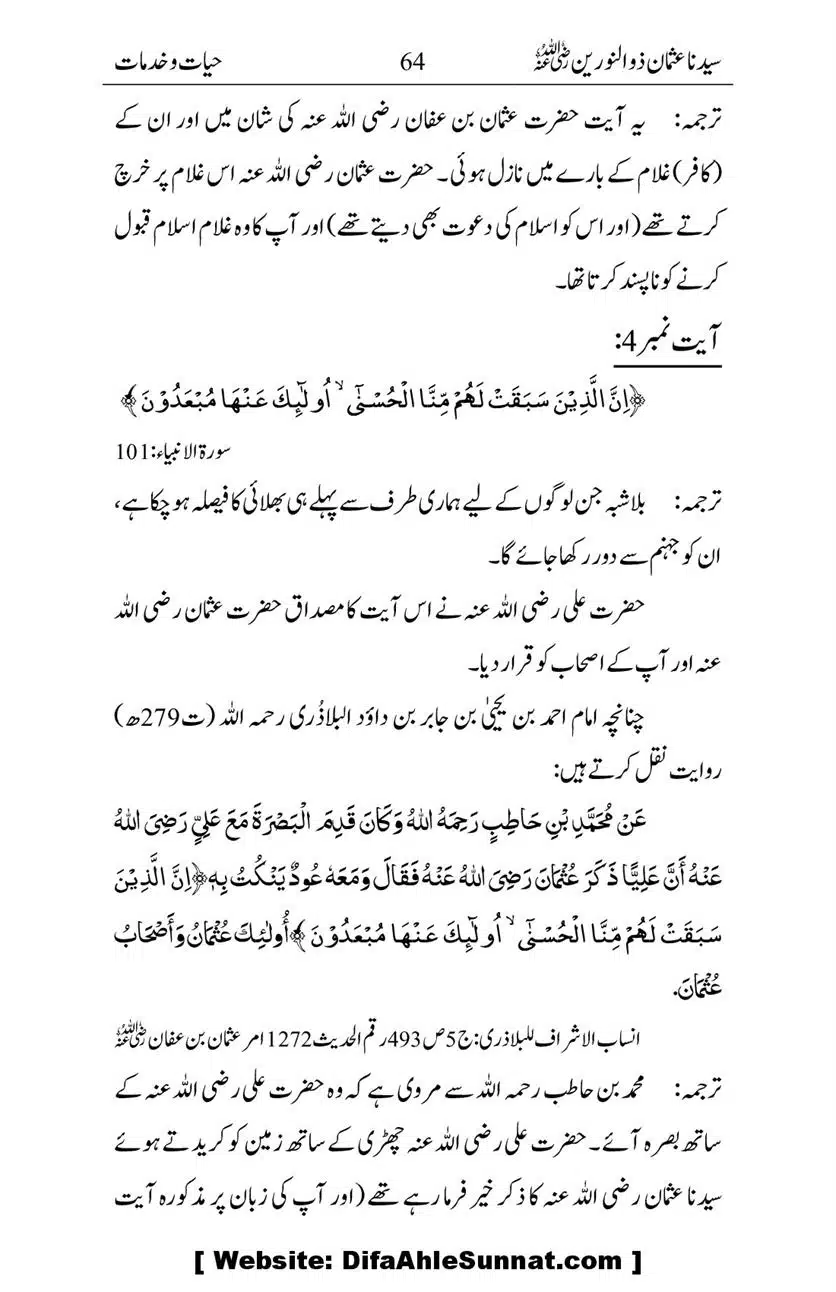 سیدنا عثمان ذوالنورین رضی اللہ عنہ 64 حیات و خدمات
ترجمہ: یہ آیت حضرت عثمان بن عفان رضی اللہ عنہ کی شان میں اور ان کے
(کافر) غلام کے بارے میں نازل ہوئی۔ حضرت عثمان رضی اللہ عنہ اس غلام پر خرچ
کرتے تھے (اور اس کو اسلام کی دعوت بھی دیتے تھے) اور آپ کا وہ غلام اسلام قبول
کرنے کو ناپسند کرتا تھا۔
آیت نمبر 4:
﴿اِنَّ الَّذِیْنَ سَبَقَتْ لَهُمْ مِّنَّا الْحُسْنٰۤی ۙ اُولٰٓئِكَ عَنْهَا مُبْعَدُوْنَ﴾
سورۃ الانبیاء: 101
ترجمہ: بلاشبہ جن لوگوں کے لیے ہماری طرف سے پہلے ہی بھلائی کا فیصلہ ہو چکا ہے،
ان کو جہنم سے دور رکھا جائے گا۔
حضرت علی رضی اللہ عنہ نے اس آیت کا مصداق حضرت عثمان رضی اللہ
عنہ اور آپ کے اصحاب کو قرار دیا۔
چنانچہ امام احمد بن یحییٰ بن جابر بن داؤد البلاذُری رحمہ اللہ (ت279ھ)
روایت نقل کرتے ہیں:
عَنْ مُحَمَّدِ بْنِ حَاطِبٍ رَحِمَهُ اللهُ وَكَانَ قَدِمَ الْبَصْرَةَ مَعَ عَلِيٍّ رَضِيَ اللهُ
عَنْهُ أَنَّ عَلِيًّا ذَكَرَ عُثْمَانَ رَضِيَ اللهُ عَنْهُ فَقَالَ وَمَعَهٗ عُودٌ يَنْكُتُ بِهٖ ﴿اِنَّ الَّذِیْنَ
سَبَقَتْ لَهُمْ مِّنَّا الْحُسْنٰۤی ۙ اُولٰٓئِكَ عَنْهَا مُبْعَدُوْنَ﴾ أُولٰئِكَ عُثْمَانُ وَأَصْحَابُ
عُثْمَانَ.
انساب الاشراف للبلاذری: ج5 ص493 رقم الحدیث 1272 امر عثمان بن عفان رضی اللہ عنہ
ترجمہ: محمد بن حاطب رحمہ اللہ سے مروی ہے کہ وہ حضرت علی رضی اللہ عنہ کے
ساتھ بصرہ آئے۔ حضرت علی رضی اللہ عنہ چھڑی کے ساتھ زمین کو کریدتے ہوئے
سیدنا عثمان رضی اللہ عنہ کا ذکر خیر فرما رہے تھے (اور آپ کی زبان پر مذکورہ آیت
[ Website: DifaAhleSunnat.com ]